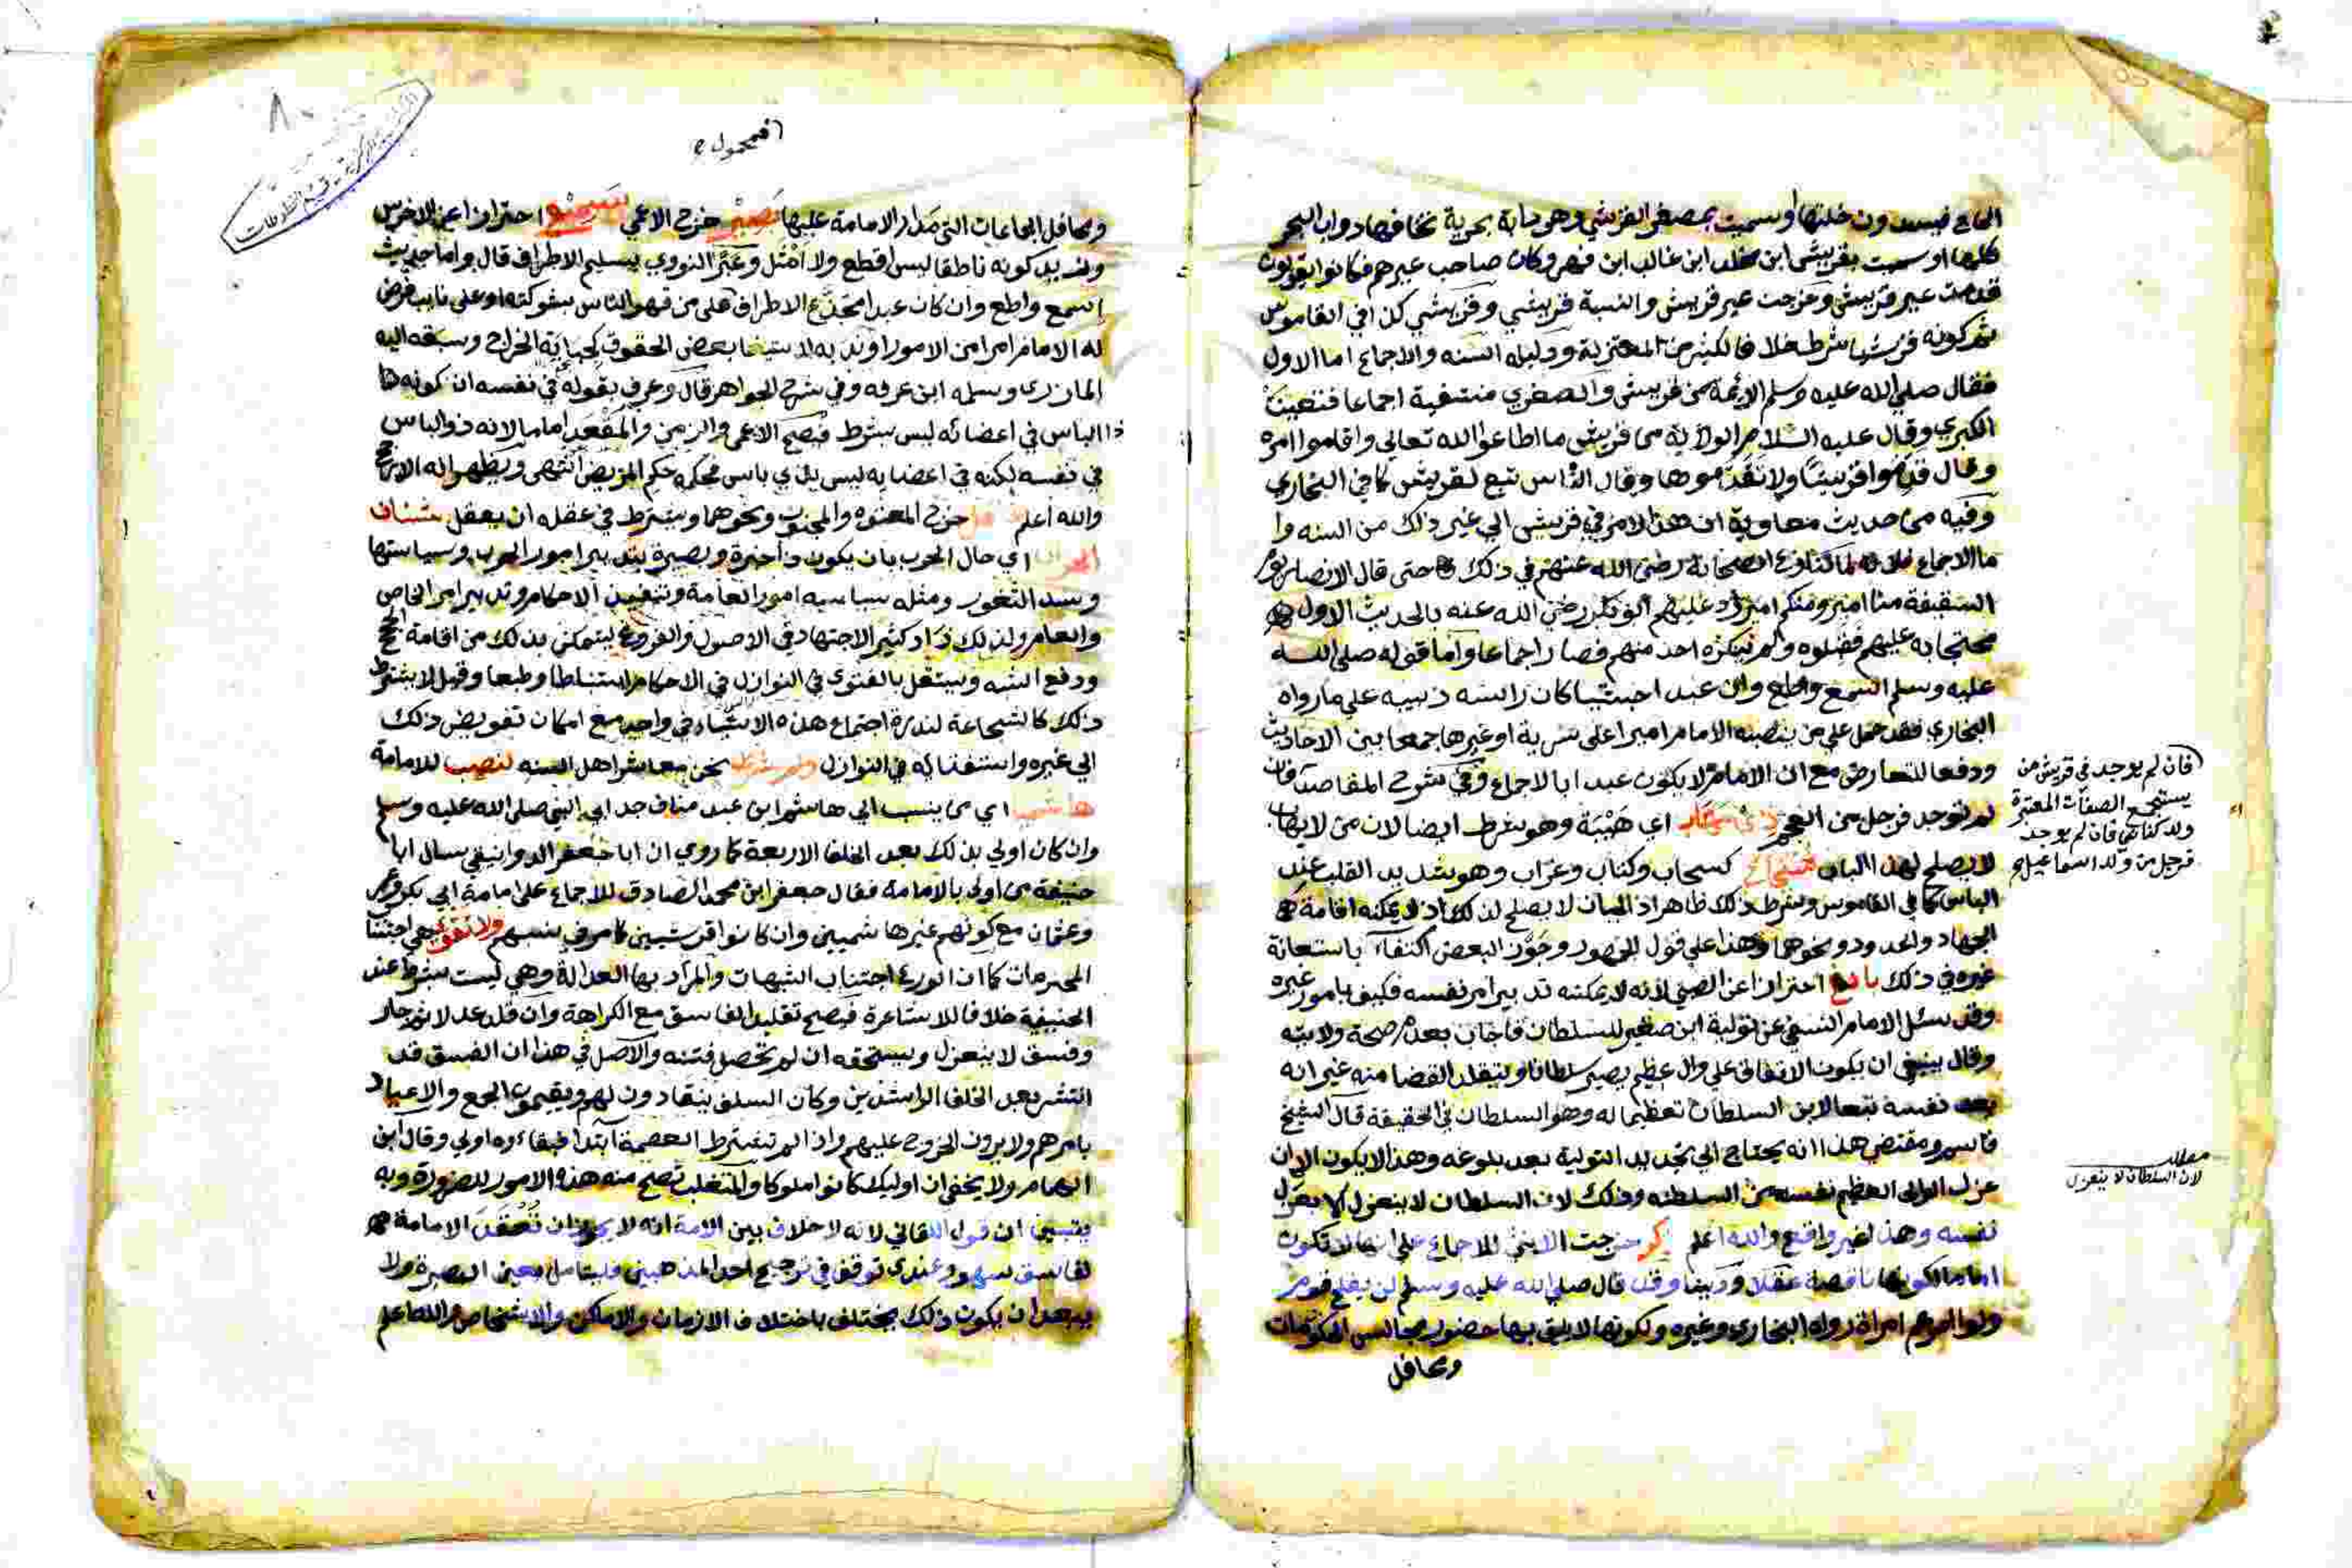 الحاج فيسدون خلتها او سميت بمصغر القرش وهي دابة بحرية تخافها دواب البحر
كلها او سميت بقريش ابن مخلد ابن غالب ابن فهر وكان صاحب عيرهم فكانوا يقولون
قدمت عير قريش وخرجت عير قريش والنسبة قريشي وقرشي كذا في القاموس
ثم كونه قرشيا شرط خلافا لكثير من المعتزلة ودليله السنه والاجماع اما الاول
فقال صلي الله عليه وسلم الائمة من قريش والصغري منتفية اجماعا فتعينت
الكبري وقال عليه السلام الولاية من قريش ما اطاعوا الله تعالي واقاموا امره
وقال قدموا قريشا ولا تقدموها وقال الناس تبع لقريش كما في البخاري
وفيه من حديث معاوية ان هذا الامر في قريش الي غير ذلك من السنه وا
ما الاجماع فلانه لما تنازع الصحابة رضي الله عنهم في ذلك حتى قال الانصار يوم
السقيفة منا امير ومنكم امير رد عليهم ابو بكر رضي الله عنه بالحديث الاول
محتجا به عليهم فقبلوه ولم ينكره احد منهم فصار اجماعا واما قوله صلي الله
عليه وسلم اسمع واطع وان عبدا حبشيا كان راسه زبيبه علي ما رواه
البخاري فقد حمل علي من ينصبه الامام اميرا على سرية او غيرها جمعا بين الاحاديث
ودفعا للتعارض مع ان الامام لا يكون عبدا بالاجماع وفي شرح المقاصد فان
لم توجد فرجل من العجم اي هيبة وهو شرط ايضا لان من لا يهاب
لا يصلح لهذا الباب شجاع كسحاب وكتاب وغراب وهو شديد القلب عند
الباس كما في القاموس وشرط ذلك ظاهر اذ الجبان لا يصلح لذلك اذ لا يمكنه اقامة
الجهاد والحدود ونحوهما وهذا علي قول الجمهور وجوز البعض اكتفاء باستعانة
غيره في ذلك بالغ احترازا عن الصبي لانه لا يمكنه تدبير امر نفسه فكيف بامور غيره
وقد سئل الامام النسفي عن تولية ابن صغير للسلطان فاجاب بعدم صحة ولايته
وقال ينبغي ان يكون الاتفاق علي وال عظيم يصير سلطانا وتتقلد القضا منه غير انه
يعد نفسه تبعا لابن السلطان تعظيما له وهو السلطان في الحقيقة قال الشيخ
قاسم ومقتضي هذا انه يحتاج الي تجديد التولية بعد بلوغه وهذا لا يكون الا ان
عزل الوالي العظيم نفسه من السلطنه وذلك لان السلطان لا ينعزل الا بعزل
نفسه وهذا غير واقع والله اعلم ذكر خرجت الانثي للاجماع علي انها لا تكون
اماما لكونها ناقصة عقلا ودينا وقد قال صلي الله عليه وسلم لن يفلح قوم
ولوا امرهم امراة رواه البخاري وغيره ولكونها لا يليق بها حضور مجالس الحكومات
ومحافل
فان لم يوجد في قريش من
يستجمع الصفات المعتبرة
ولي كناني فان لم يوجد
فرجل من ولد اسماعيل
مطلب
لان السلطان لا ينعزل
٨٠
ومحافل الجماعات التي مدار الامامة عليها بصير خرج الاعمي سميع احترازا عن الاخرس
وبزيد كونه ناطقا ليس اقطع ولا اشل وعبر النووي بسليم الاطراف قال واما حديث
اسمع واطع وان كان عبدا مجدع الاطراف فعلي من قهر الناس بشوكته او علي نايب فوض
له الامام امرا من الامور او ندبه لاستيفا بعض الحقوق كجباية الخراج وسبقه اليه
المازري وسلمه ابن عرفه وفي شرح الجواهر قال وعرف بقوله في نفسه ان كونه ها
ذا الباس في اعضائه ليس بشرط فيصح الاعمي والزمن والمقعد اماما لانه ذو الباس
في نفسه لكنه في اعضايه ليس بذي باس فحكمه حكم المريض انتهى ويظهر انه الارجح
والله اعلم خرج المعتوه والمجنون ونحوهما ويشترط في عقله ان يعقل
اي حال الحرب بان يكون ذا خبرة وبصيرة بتدبير امور الحرب وسياستها
وسد الثغور ومثله سياسه امور العامة وتنفيذ الاحكام وتدبير امر الخاص
والعام ولذلك زاد كثير الاجتهاد في الاصول والفروع ليتمكن بذلك من اقامة الحجج
ودفع الشبه ويستقل بالفتوى في النوازل في الاحكام استنباطا وطبعا وقيل لا يشترط
ذلك كالشجاعة لندرة اجتماع هذه الاشياء في واحد مع امكان تفويض ذلك
الي غيره واستفتائه في النوازل ولم نشرط نحن معاشر اهل السنه لنصب للامامة
هاشمي اي من ينسب الي هاشم ابن عبد مناف جد ابي النبي صلي الله عليه وسلم
وان كان اولي بذلك بعد الخلفا الاربعة كما روي ان ابا جعفر الدوانيقي سال ابا
حنيفة من اولي بالامامة فقال جعفر ابن محمد الصادق للاجماع علي امامة ابي بكر وعمر
وعثمان مع كونهم غير هاشميين وان كانوا قرشيين كما مر في نسبهم ولا تقوى هي اجتناب
المحرمات كما ان الورع اجتناب الشبهات والمراد بها العدالة وهي ليست بشرط عند
الحنيفية خلافا للاشاعرة فيصح تقليد الفاسق مع الكراهة وان قلد عدلا ثم جار
وفسق لا ينعزل ويستحقه ان لم تحصل فتنه والاصل في هذا ان الفسق قد
انتشر بعد الخلفا الراشدين وكان السلف ينقادون لهم ويقيمون الجمع والاعياد
بامرهم ولا يرون الخروج عليهم واذا لم تشترط العصمة ابتدا فبقاءه اولي وقال ابن
الهمام ولا يخفي ان اوليك كانوا ملوكا والمتغلب تصح منه هذه الامور للضرورة وبه
يتبين ان قول اللقاني لانه لا خلاف بين الامة انه لا يجوز ان تعقد الامامة
لفاسق سهو وعندي توقف في ترجيح احد المذهبين فليتامل بعين البصيرة ولا
يبعد ان يكون ذلك يختلف باختلاف الازمان والاماكن والاشخاص والله اعلم